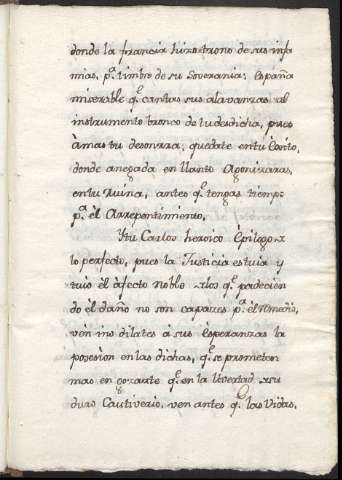 donde la francia hizo trono de sus infa
mias, p.ª timbre de su Soverania; España
miserable q.^e cantas sus alavanzas al
instrumento bronco de tu desdicha, pues
àmas tu desonrra; quedate en tu
donde anegada en llanto Agonizaras,
en tu Ruina, antes q.^e tengas tiempo
p.ª èl Arrepentimiento.
Y tu Carlos heroico Èpilogo
lo perfecto, pues la Justicia es tuia y
tuio èl àfecto noble los q.^e padecien
do èl daño no son capazes p.ª el Remedio,
ven ino dilates à sus èsperanzas la
posesion en las dichas, q.^e se prometen
mas en gozarte q.^e en la livertad su
duro Cautiverio, ven antes q.^e las Vidas,